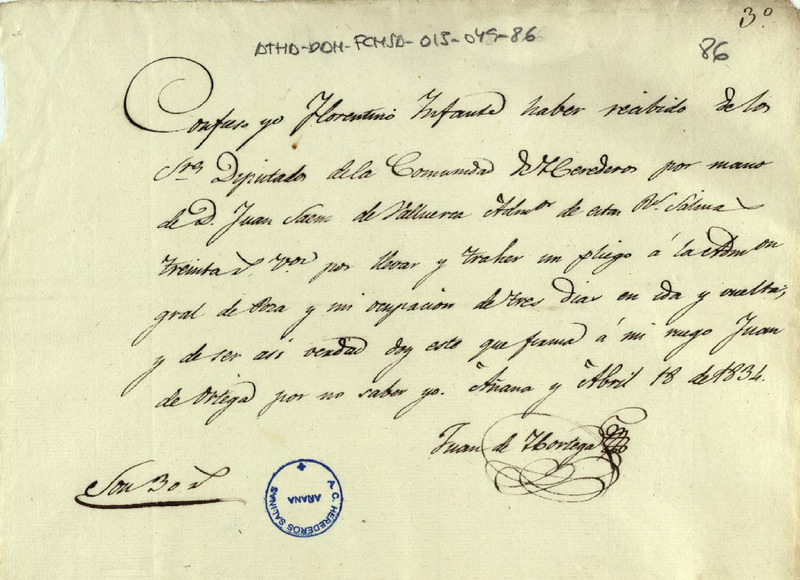 3º
ATHA-DAH-FCMSA-015-049-86
86
Confieso yo Florentino Infante haber recibido de los
Sres Diputados de la Comunidad de Herederos por mano
de D. Juan Saenz de Valluerca Admor de estas Rs Salinas
treinta rs von por llevar y traher un pliego á la Admon
gral de Poza y mi ocupacion de tres dias en ida y vuelta;
y de ser asi verdad doy este que firma á mi ruego Juan
de Ortega por no saber yo. Añana y Abril 18 de 1834.
Juan de Hortega
Son 30 rs
A.C. HEREDEROS SALINAS
AÑANA